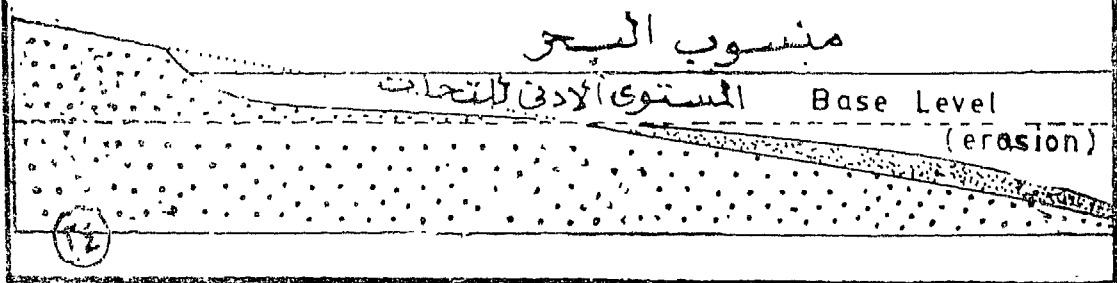 منسوب البحر
المستوى الادنى للتحات Base Level
(erosion)
٢٤